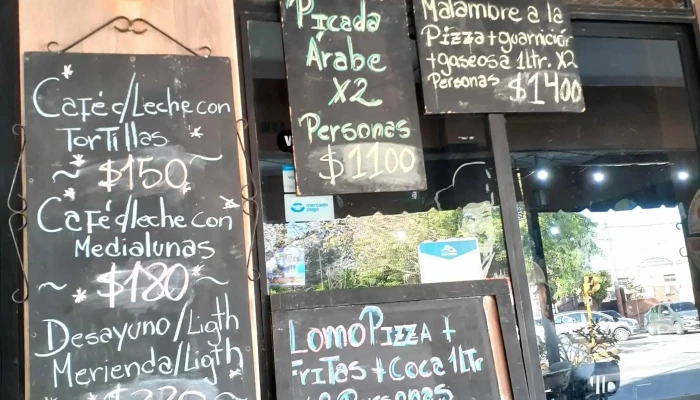 Café c/Leche con
Tortillas
~ $150 ~
Café c/leche con
Medialunas
~ $180 ~
Desayuno/Ligth
Merienda/Ligth
Picada
Árabe
X2
Personas
$1100
Malambre a la
Pizza + guarnición
+ gaseosa 1Ltr. X2
Personas $1400
mercado
pago
Lomo Pizza +
Fritas + Coca 1Ltr
Personas